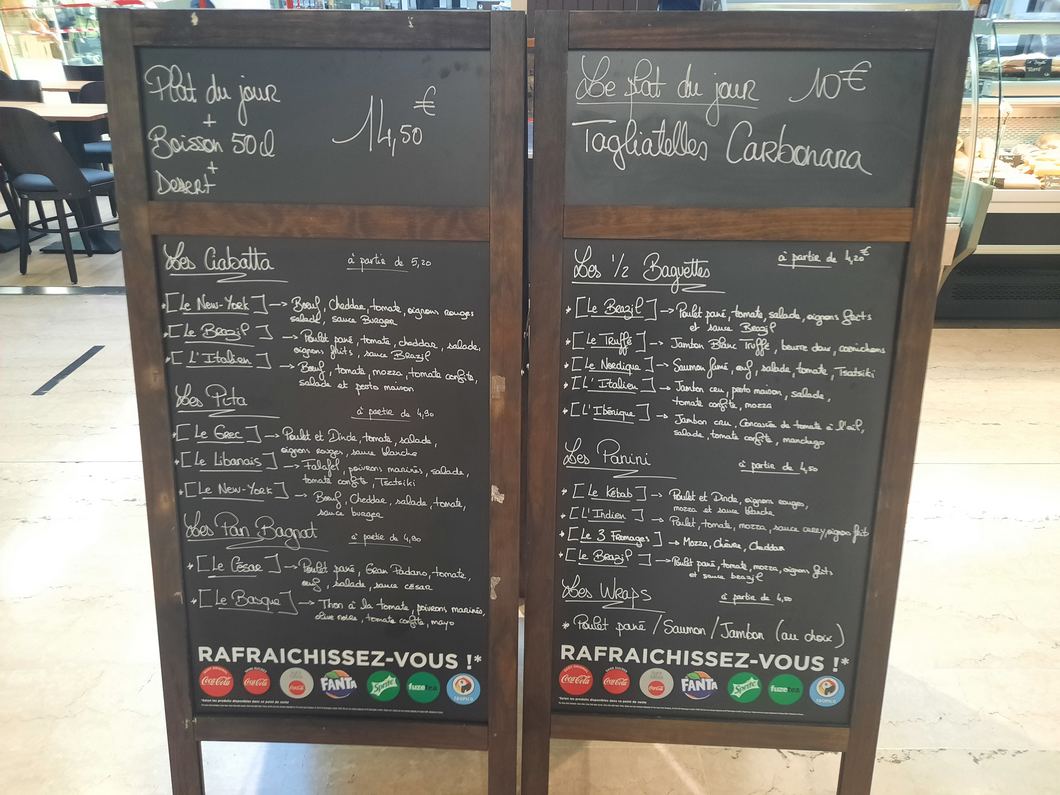 Plat du jour
+
Boisson 50cl
+
Desert
14,50€
Les Ciabatta
à partir de 5,20
* [Le New-York] → Bœuf, Cheddar, tomate, oignons rouges
salade, sauce Burger
* [Le Brazil] → Poulet pané, tomate, cheddar, salade,
oignons frits, sauce Brazil
* [L'Italien] → Bœuf, tomate, mozza, tomate confite,
salade et pesto maison
Les Pita
à partir de 4,90
* [Le Grec] → Poulet et Dinde, tomate, salade,
oignons rouges, sauce blanche
* [Le Libanais] → Falafel, poivrons marinés, salade,
tomate confite, Tsatsiki
* [Le New-York] → Bœuf, Cheddar, salade, tomate,
sauce burger
Les Pan Bagnat
à partie de 4,90
* [Le César] → Poulet pané, Gran Padano, tomate,
œuf, salade, sauce césar
* [Le Basque] → Thon à la tomate, poivrons marinés,
olive noire, tomate confite, mayo
RAFRAICHISSEZ-VOUS !*
Coca-Cola Coca-Cola Coca-Cola FANTA Sprite fuzetea TROPICO
*Selon les produits disponibles dans ce point de vente
Le plat du jour 10€
Tagliatelles Carbonara
Les 1/2 Baguettes
à partie de 4,20€
* [Le Brazil] → Poulet pané, tomate, salade, oignons frits
et sauce Brazil
* [Le Truffé] → Jambon Blanc Truffé, beurre doux, cornichons
* [Le Nordique] → Saumon fumé, œuf, salade, tomate, Tsatsiki
* [L'Italien] → Jambon cru, pesto maison, salade,
tomate confite, mozza
* [L'Ibérique] → Jambon cru, Concassée de tomate à l'ail,
salade, tomate confite, manchego
Les Panini
à partie de 4,50
* [Le Kébab] → Poulet et Dinde, oignons rouges,
mozza et sauce blanche
* [L'Indien] → Poulet, tomate, mozza, sauce curry, oignons frits
* [Le 3 Fromages] → Mozza, Chèvre, Cheddar
* [Le Brazil] → Poulet pané, tomate, mozza, oignons frits
et sauce brazil
Les Wraps
à partie de 4,50
* Poulet pané / Saumon / Jambon (au choix)
RAFRAICHISSEZ-VOUS !*
Coca-Cola Coca-Cola Coca-Cola FANTA Sprite fuzetea TROPICO
*Selon les produits disponibles dans ce point de vente